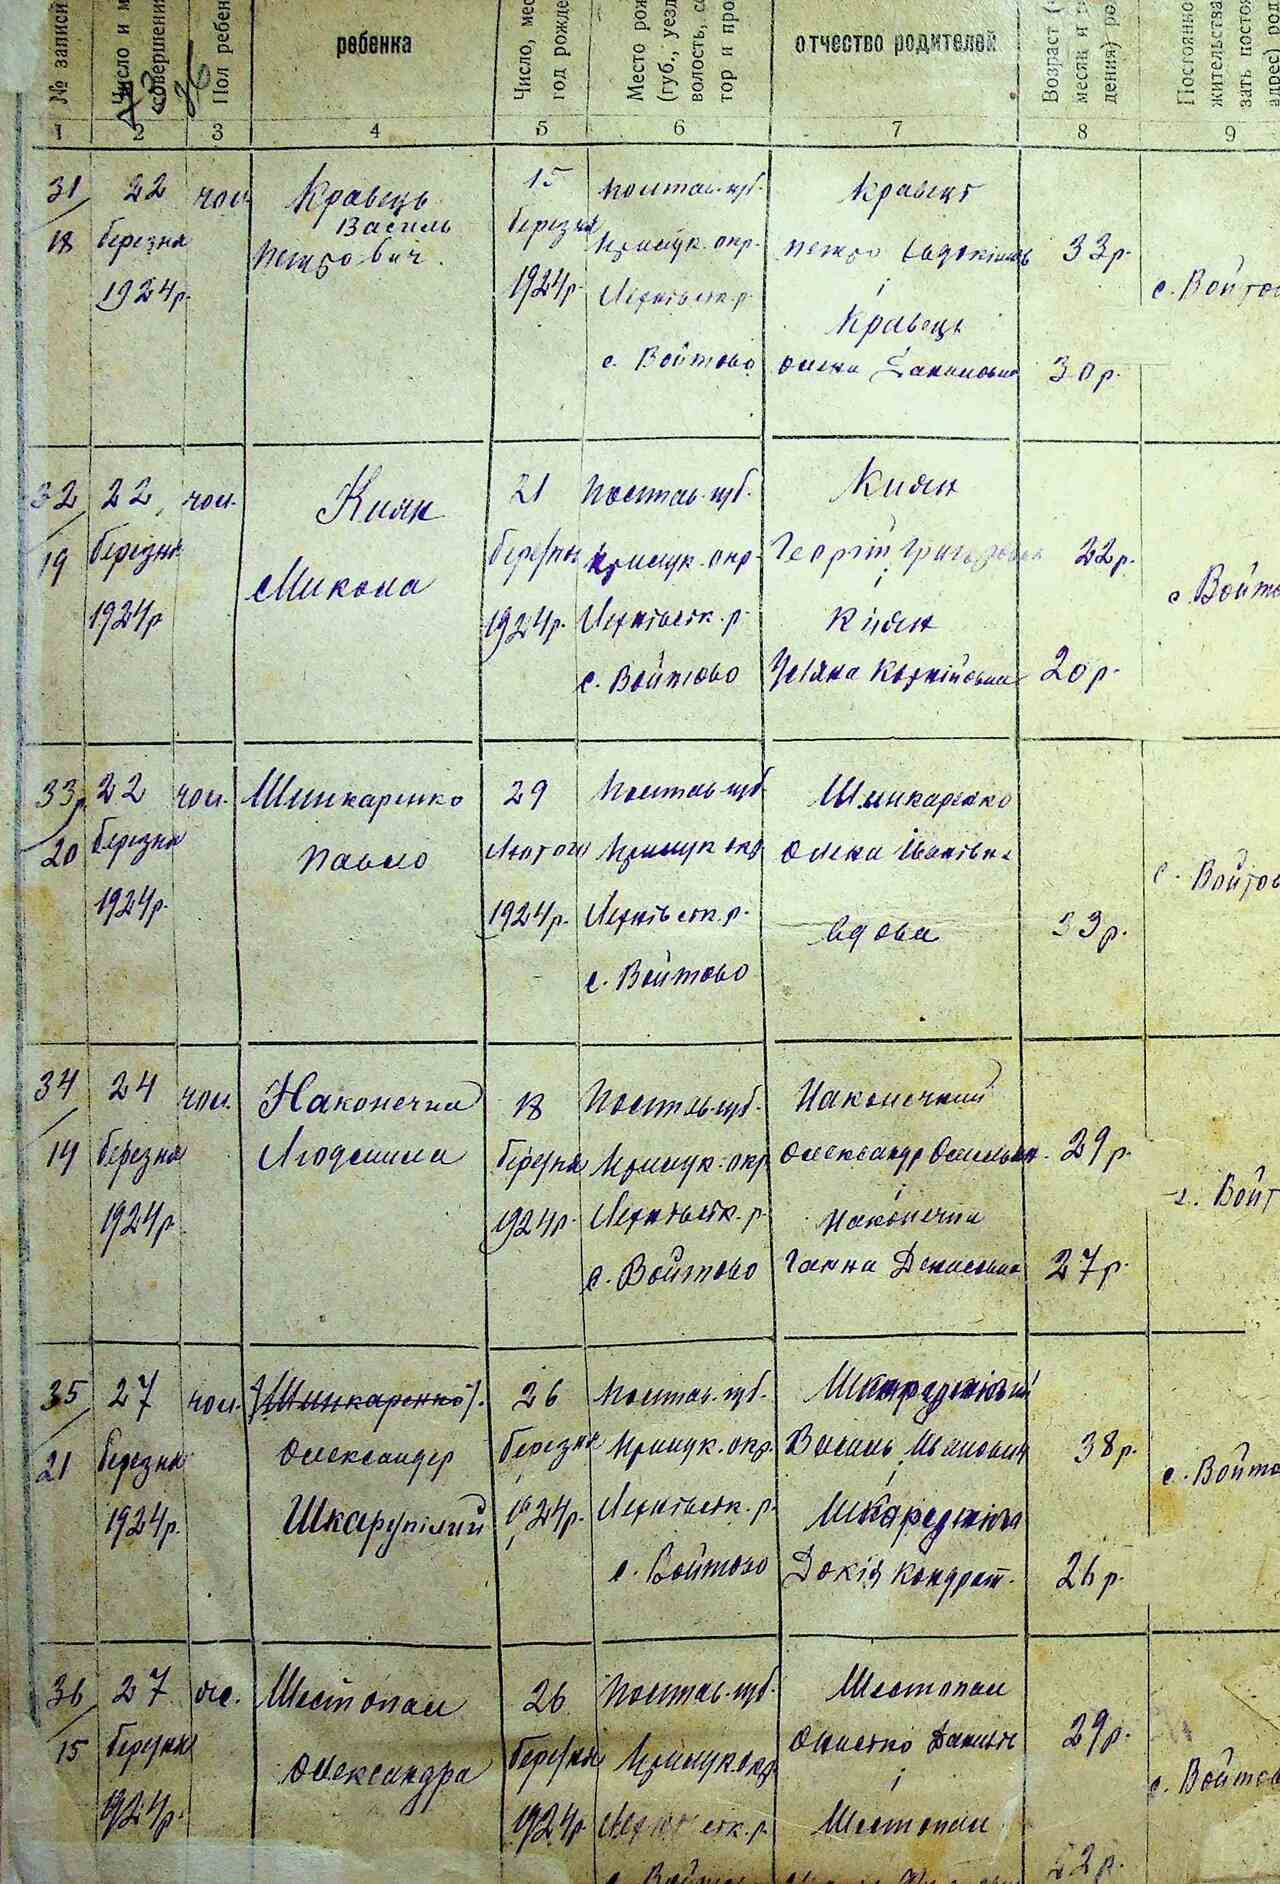 № записи
Число и м
совершени
Пол ребен
ребенка
Число, мес
год рожде
Место рож
(губ., уезд
волость, се
тор и про
отчество родителей
Возраст (ч
месяц и г
дения) ро
Постоянно
жительства
зать постоя
адрес) род
1 2 3 4 5 6 7 8 9
31
18
22
березня
1924р.
чол.
Кравець
Василь
Петрович.
15
березня
1924р.
Полтав. губ.
Прилук. окр.
с. Войтово
Кравець
Петро
і
Кравець
Олена
33р.
30р.
с. Войтов
32
19
22
березня
1924р
чол.
Киян
Микола
21
березня
1924р.
Полтав. губ.
Прилук. окр.
с. Войтово
Киян
Георгій Григорович
і
Киян
Уляна
22р.
20р.
с. Войто
33
20
22
березня
1924р.
чол.
Шинкаренко
Павло
29
Лютого
1924р.
Полтав. губ
Прилук окр
с. Войтово
Шинкаренко
Олена Іванівна
вдова
33р.
с. Войтов
34
14
24
березня
1924р
чол.
Наконечна
Людмила
18
березня
1924р.
Полтав. губ.
Прилук. окр
с. Войтово
Наконечний
Олександр
і
Наконечна
Ганна Денисовна
29р.
27р.
с. Войт
35
21
27
березня
1924р.
чол.
(Шинкаренко).
Олександер
Шкарупілий
26
березня
1924р.
Полтав. губ.
Прилук. окр.
с. Войтово
Василь Іванович
і
Докія Кондрат.
38р.
26р.
с. Войто
36
15
27
березня
1924р.
жіс.
Шестопал
Олександра
26
березня
1924р
Полтав. губ.
Прилук. окр.
с. Войтово
Шестопал
Данил
і
Шестопал
29р.
22р.
с. Войтов